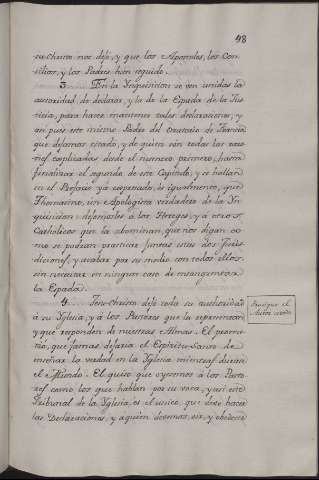 48
su-Christo nos dejó, y que los Apostoles, los Con-
cilios, y los Padres han seguido.
3. En la Ynquisicion se ven unidas la
autoridad de declarar, y la de la Espada de la Jus-
ticia, para hacer mantener tales declaraciones, y
asi pues este mismo Padre del Oratorio de Francia
que dejamos citado, y de quien són todas las razo-
nes explicadas desde el numero primero, hasta
finalizar el segundo de este Capitulo, y se hallan
en el Prefacio ya expresado, és igualmente, que
Thomasino, un Apologista verdadero de la Yn-
quisicion: dejemosles á los Hereges, y á otros
Catholicos que la abominan, que nos digan co-
mo se podrian practicar juntas estas dos Juris-
dicciones, y acabar por su medio con todos ellos,
sin necesitar en ningun caso de
la Espada.
4. Jesu-Christo dejó toda su authoridad
á su Yglesia, y á los Pastores que la representan
y que responden de nuestras Almas. El prome-
tió, que jamas dejaria el Espiritu-Santo de
enseñar la verdad en la Yglesia mientras durase
el Mundo. El quiso que oyesemos á los Pasto-
res como los que hablan por su voca, y asi este
Tribunal de la Yglesia, és el unico, que deve hacer
las Declaraciones, y a quien devemos oir, y obedecer
Prosigue el
Autor